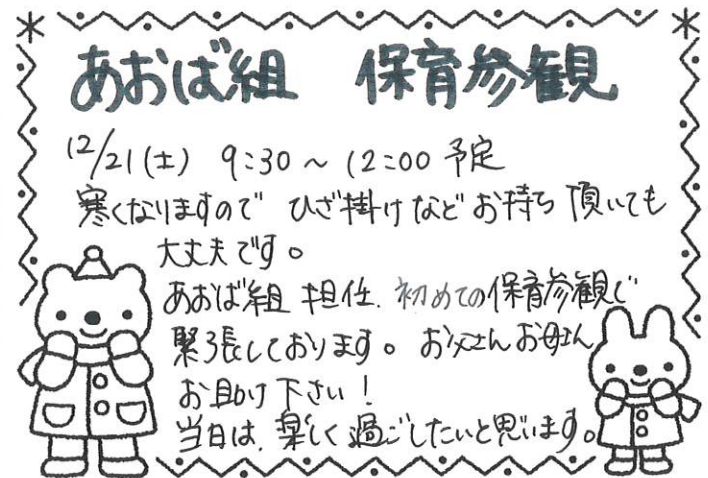 あおば組 保育参観
12/21(土) 9:30〜12:00 予定
寒くなりますので ひざ掛けなどお持ち頂いても
大丈夫です。
あおば組 担任、初めての保育参観で
緊張しております。お父さんお母さん
お助け下さい！
当日は、楽しく過ごしたいと思います。